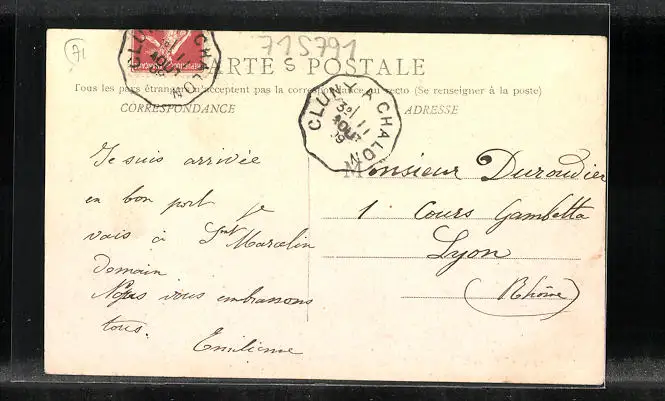 71
715791
CARTE POSTALE
S
Tous les pays étrangers n'acceptent pas la correspondance au recto (Se renseigner à la poste)
CORRESPONDANCE
ADRESSE
CLUNY A CHALON
3E
11
AOUT
09
Je suis arrivée
en bon port je
vais à St Marcelin
domain
Nous vous embrassons
tous.
Emilienne
Monsieur Duroudier
1 Cours Gambetta
Lyon
(Rhône)